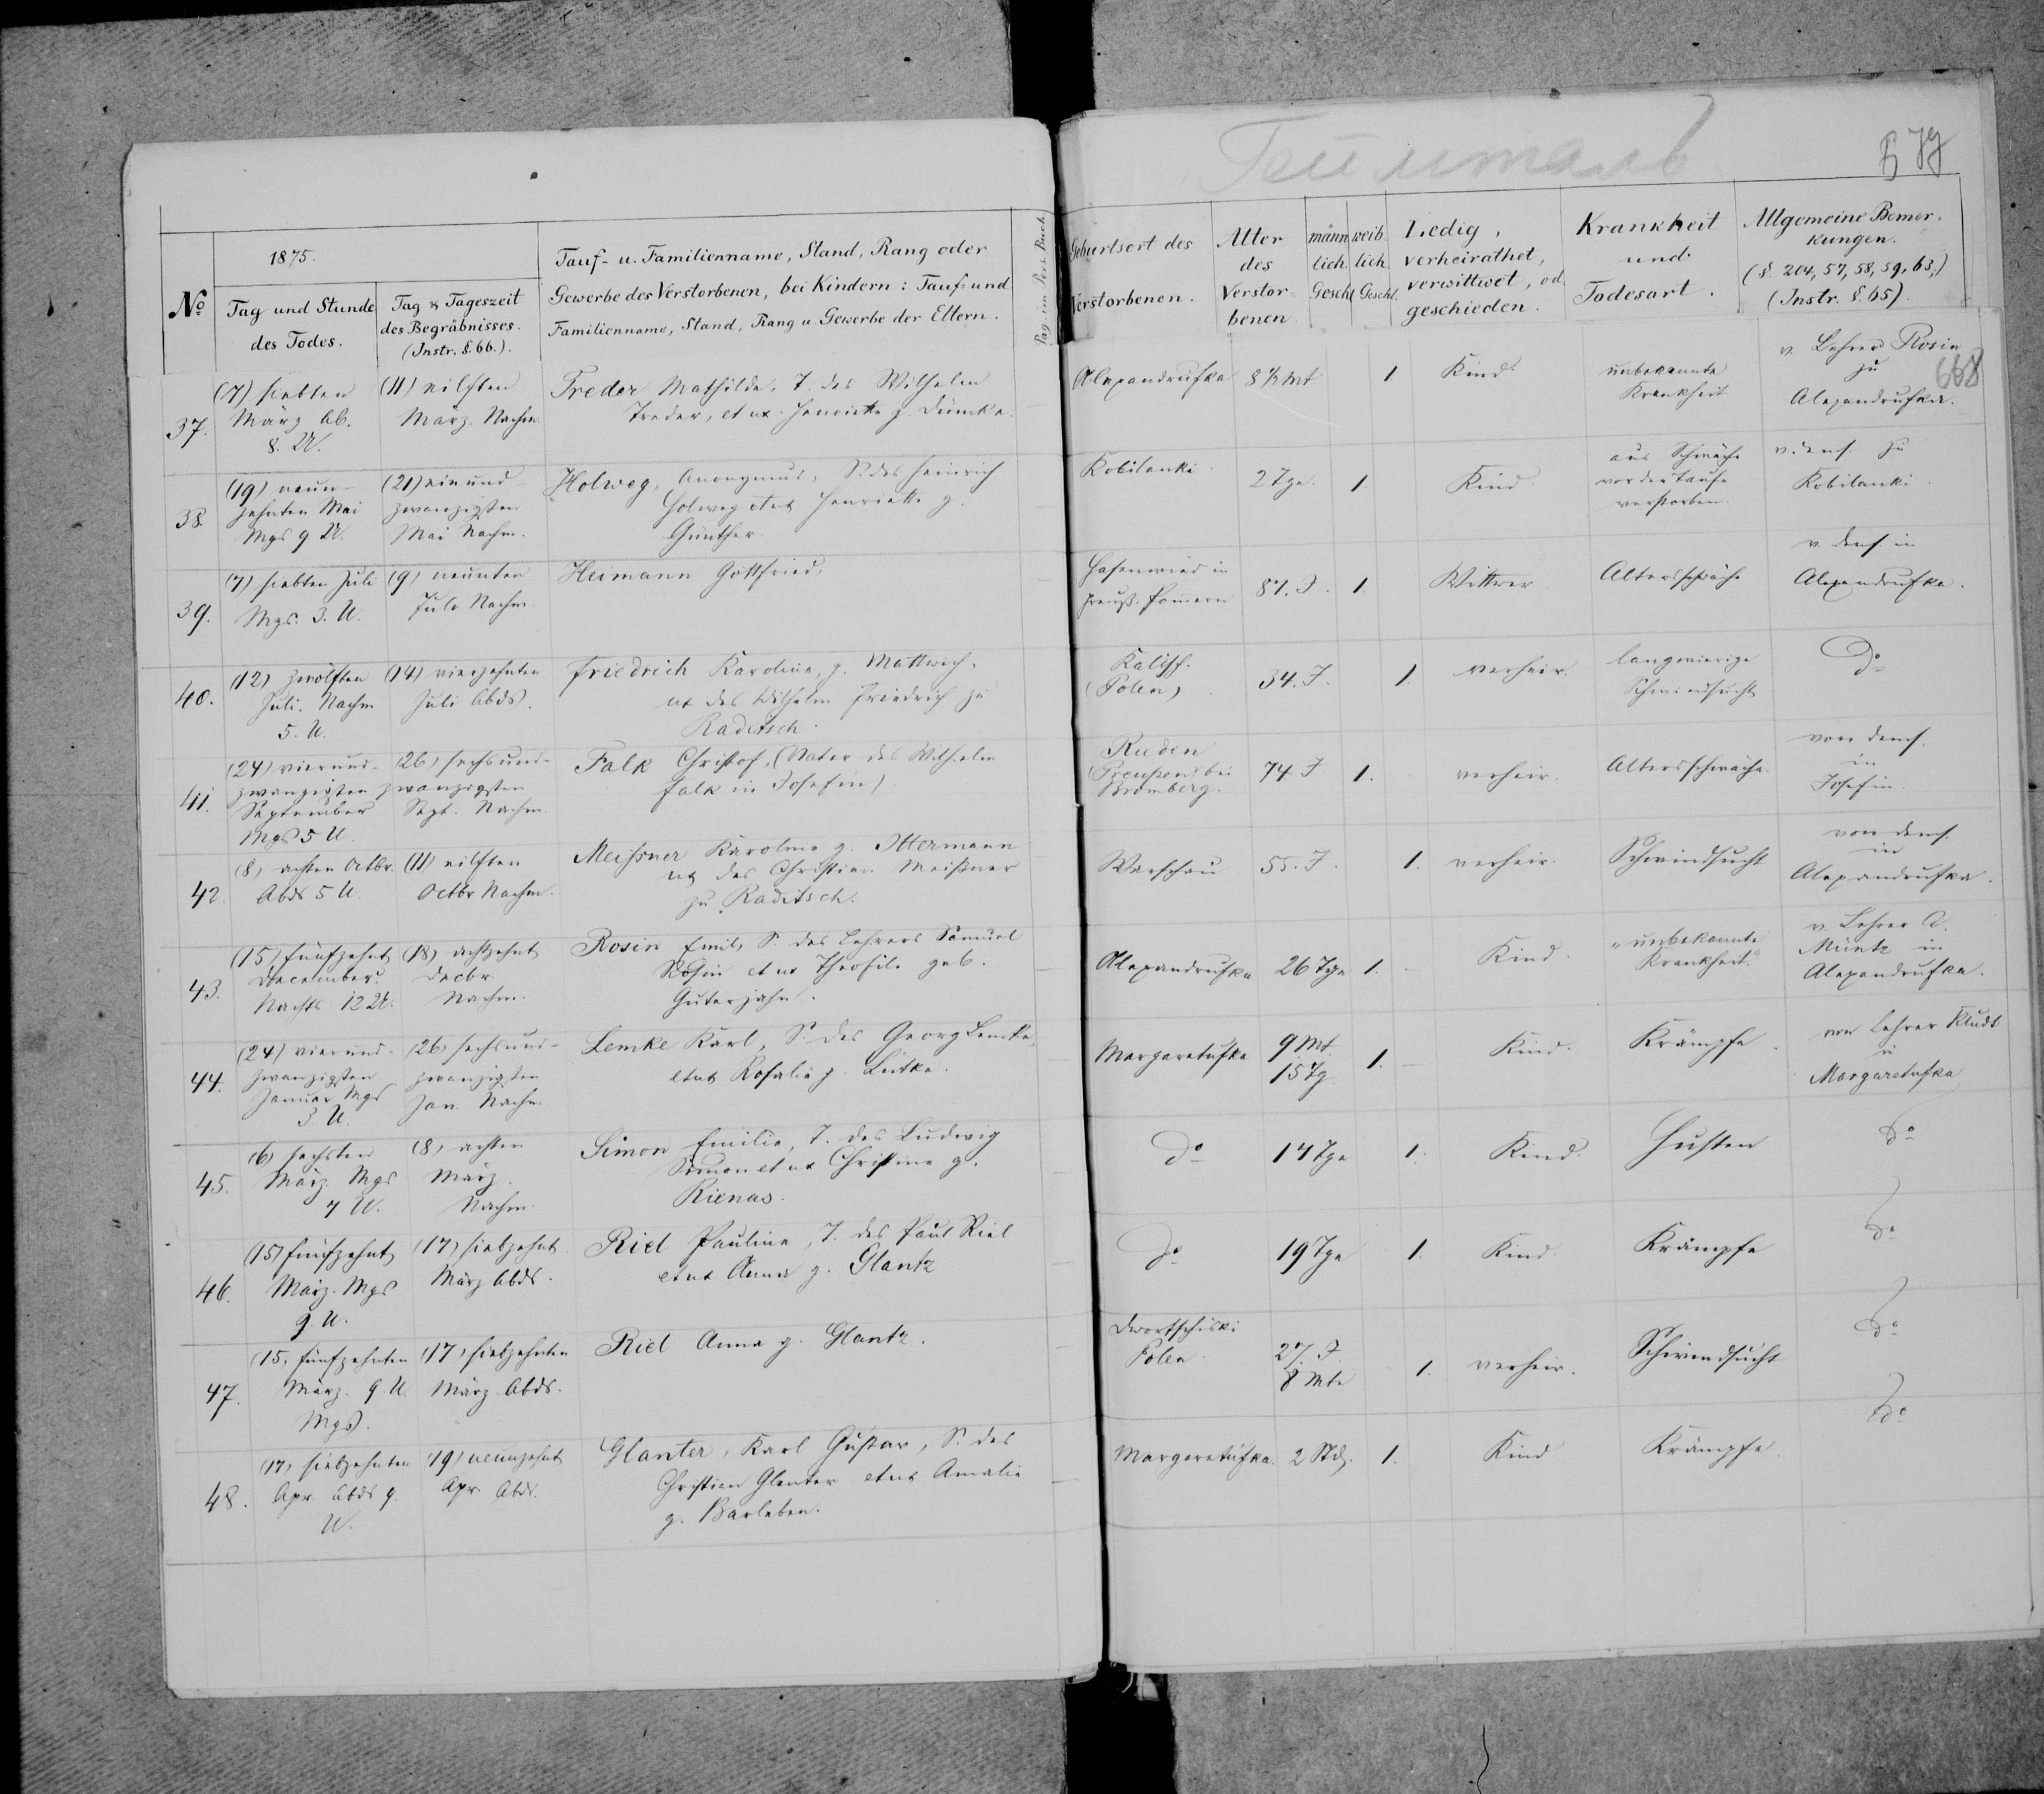 Геимталь
577
668
1875.
No
Tag und Stunde
des Todes.
Tag & Tageszeit
des Begräbnisses.
(Instr. §. 66.).
Tauf- u. Familienname, Stand, Rang oder
Gewerbe des Verstorbenen, bei Kindern: Tauf- und
Familienname, Stand, Rang u. Gewerbe der Eltern.
Pag. im Pers. Buch
Geburtsort des
Verstorbenen.
Alter
des
Verstor-
benen.
männ
lich.
Geschl.
weib
lich
Geschl.
Ledig,
verheirathet,
verwittwet, od.
geschieden.
Krankheit
und
Todesart.
Allgemeine Bemer-
kungen.
(§. 204, 57, 58, 59, 63,)
(Instr. §. 65).
37.
(7) siebten
März Ab.
8. U.
(11) eilften
März. Nachm.
Treder Mathilde, T. des Wilhelm
Treder, et ux. Henriette g.
Alexandrufka
8 ½ Mt.
1.
Kind
unbekannte
Krankheit
v. Lehrer Rosin
zu
Alexandrufka.
38.
(19) neun-
zehnten Mai
Mgs 9 U.
(21) ein und
zwanzigsten
Mai Nachm.
Holweg, Anonymus, S. des Heinrich
Holweg et ux Henriette g.
Günther.
Kobilanki
2 Tge.
1.
Kind
aus Schwäche
vor der Taufe
verstorben.
v. dems. zu
Kobilanki.
39.
(7) siebten Juli
Mgs. 3. U.
(9) neunten
Juli Nachm.
Heimann Gottfried,
in
Preuß. Pomern
87. J.
1.
Wittwer
Altersschwäche
v. dems. in
Alexandrufka.
40.
(12) zwölften
Juli. Nachm
5. U.
(14) vierzehnten
Juli Abds.
Friedrich Karoline, g.
ux des Wilhelm Friedrich zu
Raditsch.
Kalisch.
(Polen)
34. J.
1.
verheir.
langwierige
Schwindsucht
do
41.
(24) vierund-
zwanzigsten
September
Mgs 5 U.
(26) sechsund-
zwanzigsten
Sept. Nachm.
Falk Christof, (Vater des Wilhelm
Falk in Josefin)
Ruden
(Preußen) bei
Bromberg.
74. J
1.
verheir.
Altersschwäche.
von dems.
in
Josefin.
42.
(8) achten Octbr.
Abds 5 U.
(11) eilften
Octbr Nachm.
Meißner Karoline g. Ittermann
ux des Christian Meißner
zu Raditsch.
Warschau
55. J.
1.
verheir.
Schwindsucht
von dems.
in
Alexandrufka.
43.
(15) fünfzehnt
December.
Nachts 12 U.
(18) achtzehnt
Decbr.
Nachm.
Rosin Emil, S. des Lehrers Samuel
Rosin et ux Theofile geb.
Guterjahn.
Alexandrufka
26 Tge
1.
Kind.
"unbekannte
Krankheit."
v. Lehrer A.
Müntz in
Alexandrufka.
44.
(24) vierund-
zwanzigsten
Januar Mgs
3. U.
(26) sechsund-
zwanzigsten
Jan. Nachm.
Lemke Karl, S. des Georg Lemke,
et ux Rosalie g. Lütke.
Margaretufka
9 Mt.
15 Tg
1.
Kind.
Krämpfe.
von Lehrer Kludt
in
Margaretufka
45.
(6) sechsten
März Mgs
7 U.
(8) achten
März.
Nachm.
Simon Emilie, T. des Ludwig
Simon et ux Christine g.
Rienas.
do
14 Tge
1.
Kind
Husten
do
46.
(15) fünfzehnt
März. Mgs
9. U.
(17) siebzehnt
März Abds.
Riel Pauline, T. des Paul Riel
et ux Anna g. Glantz
do
19 Tge
1.
Kind.
Krämpfe
do
47.
(15) fünfzehnten
März. 9. U.
Mgs.
(17) siebzehnten
März Abds.
Riel Anna g. Glantz.
Dwortschiski
Polen
27. J.
8 Mte
1.
verheir.
Schwindsucht
do
48.
(17) siebzehnten
Apr. Abds 9.
U.
(19) neunzehnt
Apr Abds.
Glanter, Karl Gustav, S. des
Christian Glanter et ux Amalie
g. Barleben.
Margaretufka.
2 Std.
1.
Kind
Krämpfe
do